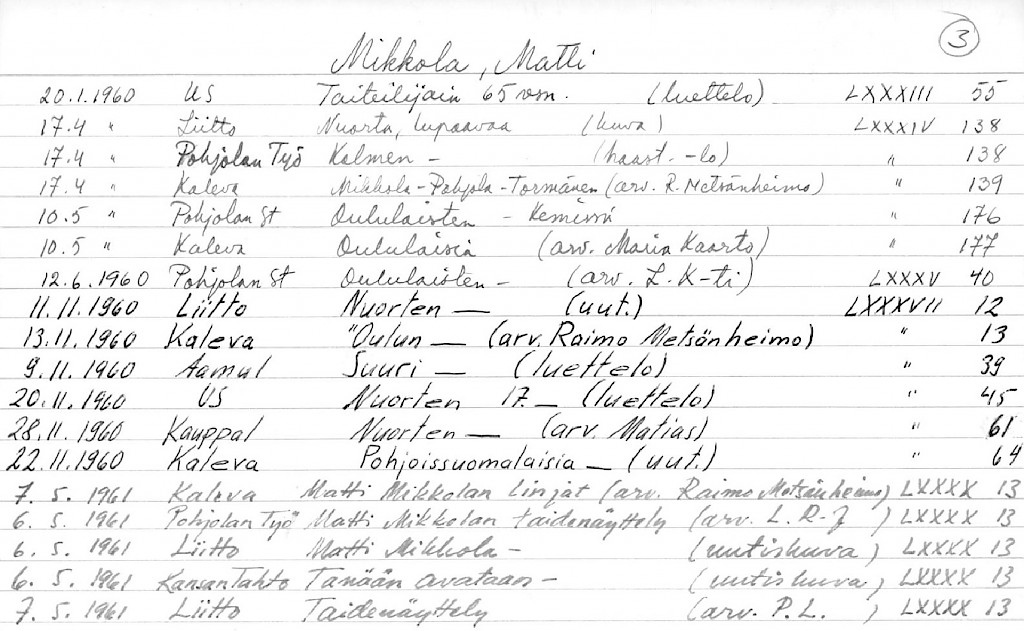 3
Mikkola, Matti
20.1.1960 US Taiteilijain 65 vsn. (luettelo) LXXXIII 55
17.4 " Liitto Nuorta, lupaavaa (kuva) LXXXIV 138
17.4 " Pohjolan Työ Kolmen - (haast. -lo) " 138
17.4 " Kaleva Mikkola-Pohjola-Tormänen (arv. R. Metsänheimo) " 139
10.5 " Pohjolan St Oululaisten - Kemissä " 176
10.5 " Kaleva Oululaisia (arv. Maria Kaarto) " 177
12.6.1960 Pohjolan St Oululaisten - (arv. L. K-ti) LXXXV 40
11.11.1960 Liitto Nuorten — (uut.) LXXXVII 12
13.11.1960 Kaleva "Oulun — (arv. Raimo Metsänheimo) " 13
9.11.1960 Aamul Suuri — (luettelo) " 39
20.11.1960 US Nuorten 17. — (luettelo) " 45
28.11.1960 Kauppal Nuorten — (arv. Matias) " 61
22.11.1960 Kaleva Pohjoissuomalaisia — (uut.) " 64
7. 5. 1961 Kaleva Matti Mikkolan linjat (arv. Raimo Metsänheimo) LXXXX 13
6. 5. 1961 Pohjolan Työ Matti Mikkolan taidenäyttely (arv. L. R-J ) LXXXX 13
6. 5. 1961 Liitto Matti Mikkola - (uutiskuva) LXXXX 13
6. 5. 1961 Kansan Tahto Tänään avataan - (uutiskuva) LXXXX 13
7. 5. 1961 Liitto Taidenäyttely (arv. P.L. ) LXXXX 13